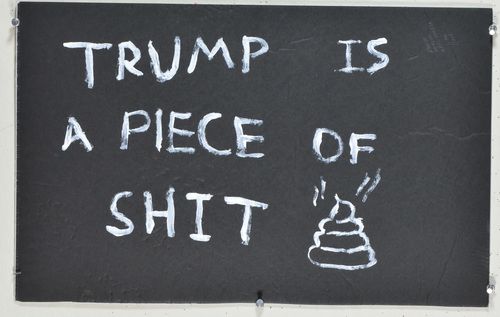 TRUMP IS
A PIECE OF
SHIT